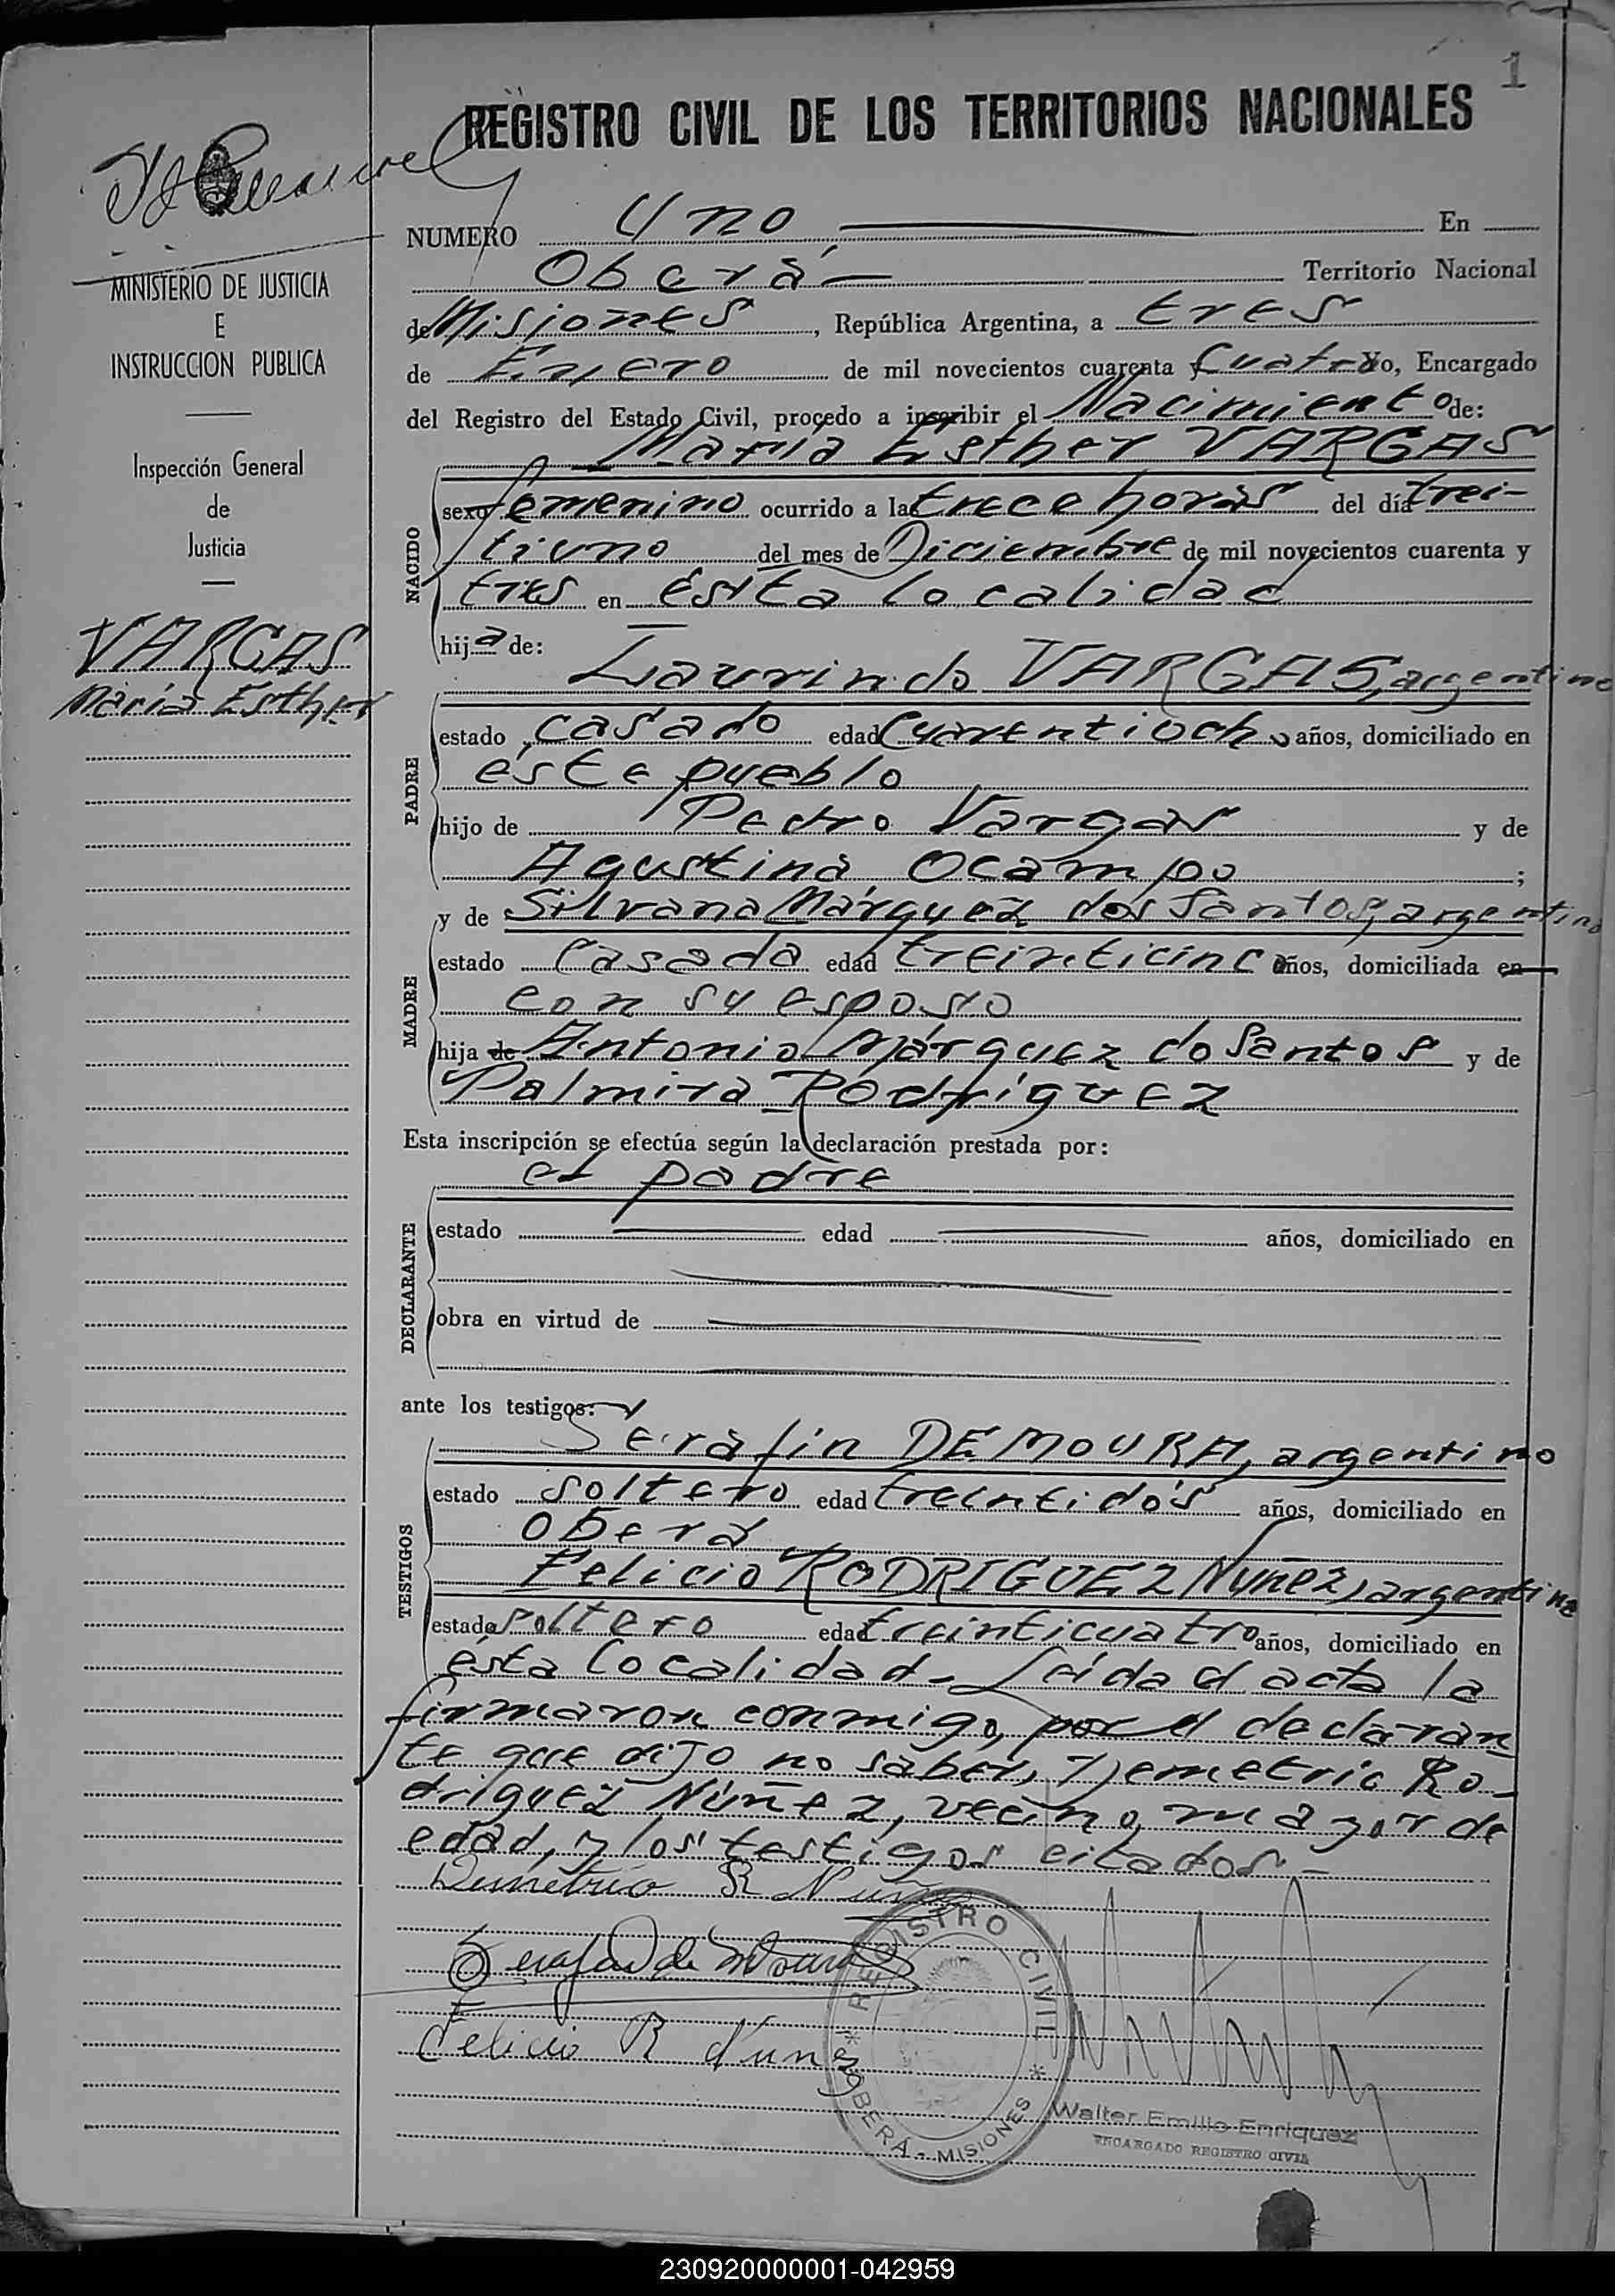 1
REGISTRO CIVIL DE LOS TERRITORIOS NACIONALES
NUMERO Uno En
Oberá Territorio Nacional
de Misiones, República Argentina, a tres
de Enero de mil novecientos cuarenta y cuatro yo, Encargado
del Registro del Estado Civil, procedo a inscribir el Nacimiento de:
María Esther VARGAS
NACIDO
sexo femenino ocurrido a la trece horas del día trei-
tiuno del mes de Diciembre de mil novecientos cuarenta y
tres en ésta localidad
hija de:
Laurindo VARGAS, argentino
PADRE
estado casado edad cuarentiocho años, domiciliado en
éste pueblo
hijo de Pedro Vargas y de
Agustina Ocampo ;
y de Silvana Márquez dos Santos, argentina
MADRE
estado casada edad treinticinco años, domiciliada en
con su esposo
hija de Antonio Márquez do Santos y de
Palmira Rodríguez
Esta inscripción se efectúa según la declaración prestada por:
el padre
DECLARANTE
estado edad años, domiciliado en
obra en virtud de
ante los testigos:
Serafín DE MOURA, argentino
TESTIGOS
estado soltero edad treintidós años, domiciliado en
Oberá
Felicio RODRIGUEZ Nuñez, argentino
estado soltero edad treinticuatro años, domiciliado en
ésta localidad. Leída el acta la
firmaron conmigo, por el declaran
te que dijo no saber, Demetrio Ro-
driguez Núñez, vecino, mayor de
edad, y los testigos citados.-
Demetrio R Nuñez
Serafin de Moura
Felicio R Núnez
REGISTRO CIVIL
* OBERÁ - MISIONES *
Walter Emilio Enriquez
ENCARGADO REGISTRO CIVIL
MINISTERIO DE JUSTICIA
E
INSTRUCCION PUBLICA
Inspección General
de
Justicia
VARGAS
María Esther
230920000001-042959